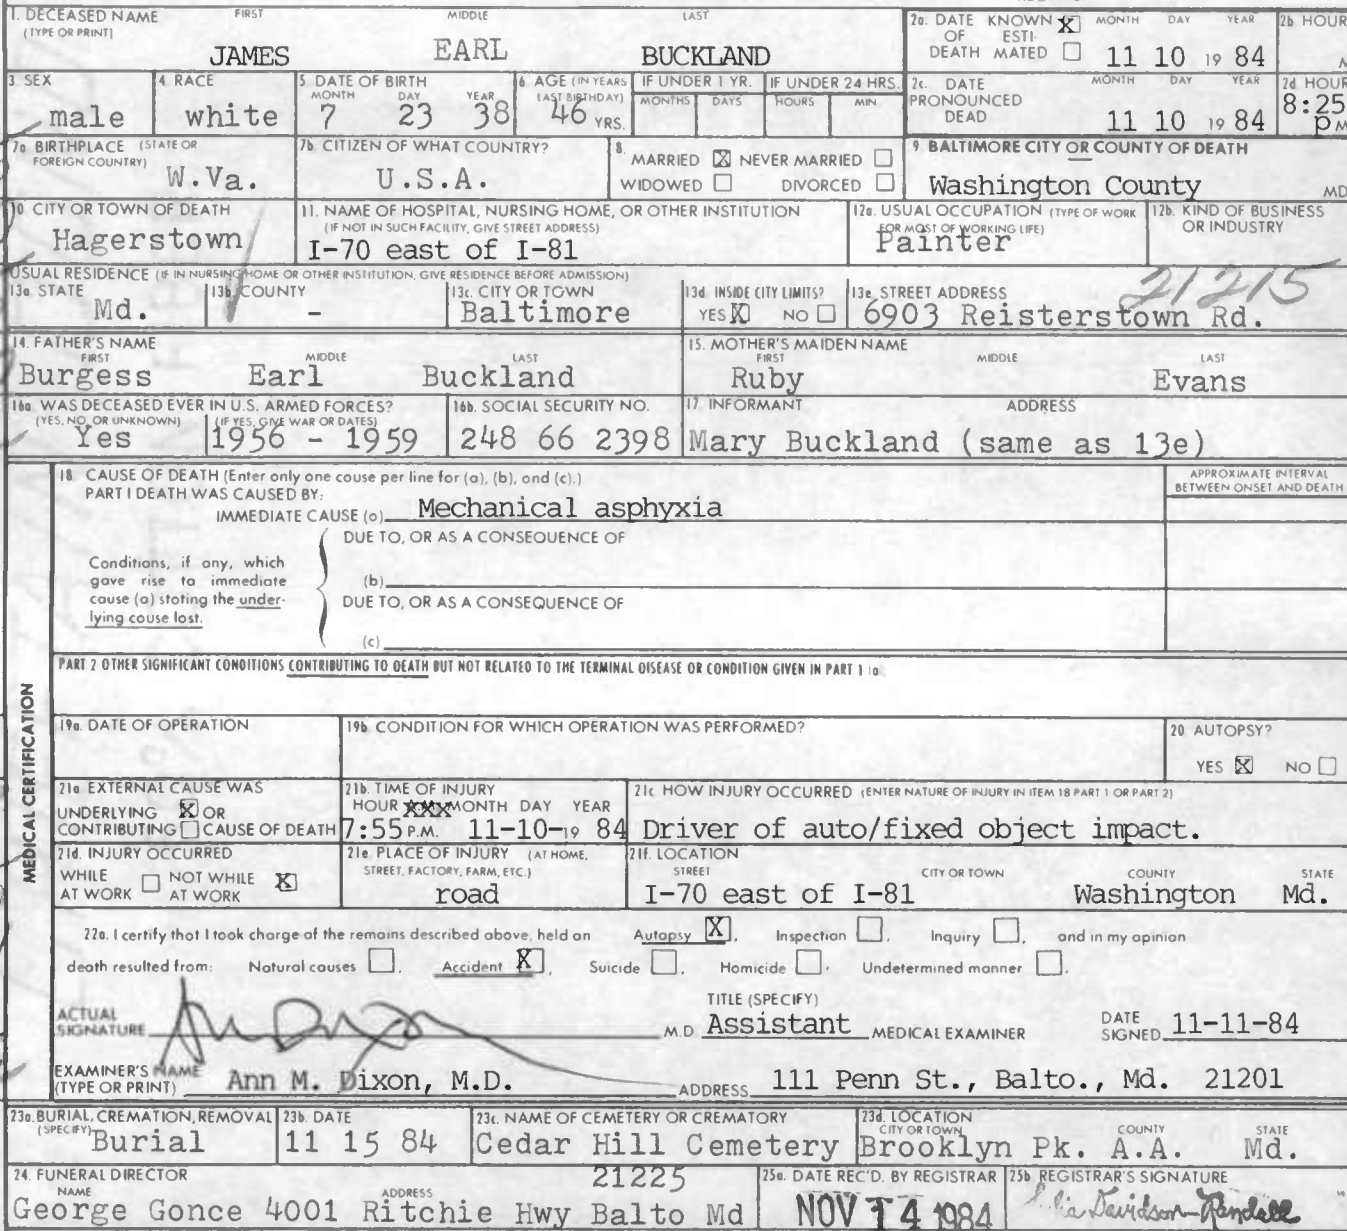 1. DECEASED NAME FIRST MIDDLE LAST
(TYPE OR PRINT)
JAMES EARL BUCKLAND
2a. DATE KNOWN X MONTH DAY YEAR
OF ESTI-
DEATH MATED 11 10 19 84
2b HOUR
M
3 SEX
male
4. RACE
white
5. DATE OF BIRTH
MONTH DAY YEAR
7 23 38
6 AGE (IN YEARS
LAST BIRTHDAY)
46 YRS.
IF UNDER 1 YR.
MONTHS DAYS
IF UNDER 24 HRS.
HOURS MIN.
2c. DATE MONTH DAY YEAR
PRONOUNCED
DEAD 11 10 19 84
2d HOUR
8:25
PM
7a BIRTHPLACE (STATE OR
FOREIGN COUNTRY)
W.Va.
7b. CITIZEN OF WHAT COUNTRY?
U.S.A.
8.
MARRIED X NEVER MARRIED
WIDOWED DIVORCED
9. BALTIMORE CITY OR COUNTY OF DEATH
Washington County MD
10 CITY OR TOWN OF DEATH
Hagerstown
11. NAME OF HOSPITAL, NURSING HOME, OR OTHER INSTITUTION
(IF NOT IN SUCH FACILITY, GIVE STREET ADDRESS)
I-70 east of I-81
12a. USUAL OCCUPATION (TYPE OF WORK
FOR MOST OF WORKING LIFE)
Painter
12b. KIND OF BUSINESS
OR INDUSTRY
USUAL RESIDENCE (IF IN NURSING HOME OR OTHER INSTITUTION, GIVE RESIDENCE BEFORE ADMISSION)
13a STATE
Md.
13b. COUNTY
-
13c. CITY OR TOWN
Baltimore
13d INSIDE CITY LIMITS?
YES X NO
13e. STREET ADDRESS 21215
6903 Reisterstown Rd.
14. FATHER'S NAME
FIRST MIDDLE LAST
Burgess Earl Buckland
15. MOTHER'S MAIDEN NAME
FIRST MIDDLE LAST
Ruby Evans
16a WAS DECEASED EVER IN U.S. ARMED FORCES?
(YES, NO, OR UNKNOWN) (IF YES, GIVE WAR OR DATES)
Yes 1956 - 1959
16b. SOCIAL SECURITY NO.
248 66 2398
17 INFORMANT ADDRESS
Mary Buckland (same as 13e)
MEDICAL CERTIFICATION
18 CAUSE OF DEATH (Enter only one couse per line for (a), (b), and (c).)
PART I DEATH WAS CAUSED BY:
IMMEDIATE CAUSE (a) Mechanical asphyxia
APPROXIMATE INTERVAL
BETWEEN ONSET AND DEATH
DUE TO, OR AS A CONSEQUENCE OF
Conditions, if any, which
gave rise to immediate
cause (a) stating the under-
lying couse lost.
(b)
DUE TO, OR AS A CONSEQUENCE OF
(c)
PART 2 OTHER SIGNIFICANT CONDITIONS CONTRIBUTING TO DEATH BUT NOT RELATED TO THE TERMINAL DISEASE OR CONDITION GIVEN IN PART 1 1a
19a. DATE OF OPERATION
19b. CONDITION FOR WHICH OPERATION WAS PERFORMED?
20 AUTOPSY?
YES X NO
21a EXTERNAL CAUSE WAS
UNDERLYING X OR
CONTRIBUTING CAUSE OF DEATH
21b. TIME OF INJURY
HOUR XXX MONTH DAY YEAR
7:55 P.M. 11-10-19 84
21c HOW INJURY OCCURRED (ENTER NATURE OF INJURY IN ITEM 18 PART 1 OR PART 2)
Driver of auto/fixed object impact.
21d. INJURY OCCURRED
WHILE NOT WHILE X
AT WORK AT WORK
21e PLACE OF INJURY (AT HOME,
STREET, FACTORY, FARM, ETC.)
road
21f. LOCATION
STREET CITY OR TOWN COUNTY STATE
I-70 east of I-81 Washington Md.
22a. I certify that I took charge of the remains described above, held an Autopsy X, Inspection, Inquiry, and in my opinion
death resulted from: Natural causes, Accident X, Suicide, Homicide, Undetermined manner.
ACTUAL
SIGNATURE M.D.
TITLE (SPECIFY)
Assistant MEDICAL EXAMINER
DATE
SIGNED 11-11-84
EXAMINER'S NAME
(TYPE OR PRINT) Ann M. Dixon, M.D. ADDRESS 111 Penn St., Balto., Md. 21201
23a. BURIAL, CREMATION, REMOVAL
(SPECIFY) Burial
23b. DATE
11 15 84
23c. NAME OF CEMETERY OR CREMATORY
Cedar Hill Cemetery
23d. LOCATION
CITY OR TOWN COUNTY STATE
Brooklyn Pk. A.A. Md.
24. FUNERAL DIRECTOR 21225
NAME ADDRESS
George Gonce 4001 Ritchie Hwy Balto Md
25a. DATE REC'D. BY REGISTRAR
NOV 14 1984
25b. REGISTRAR'S SIGNATURE
Davidson-Randall